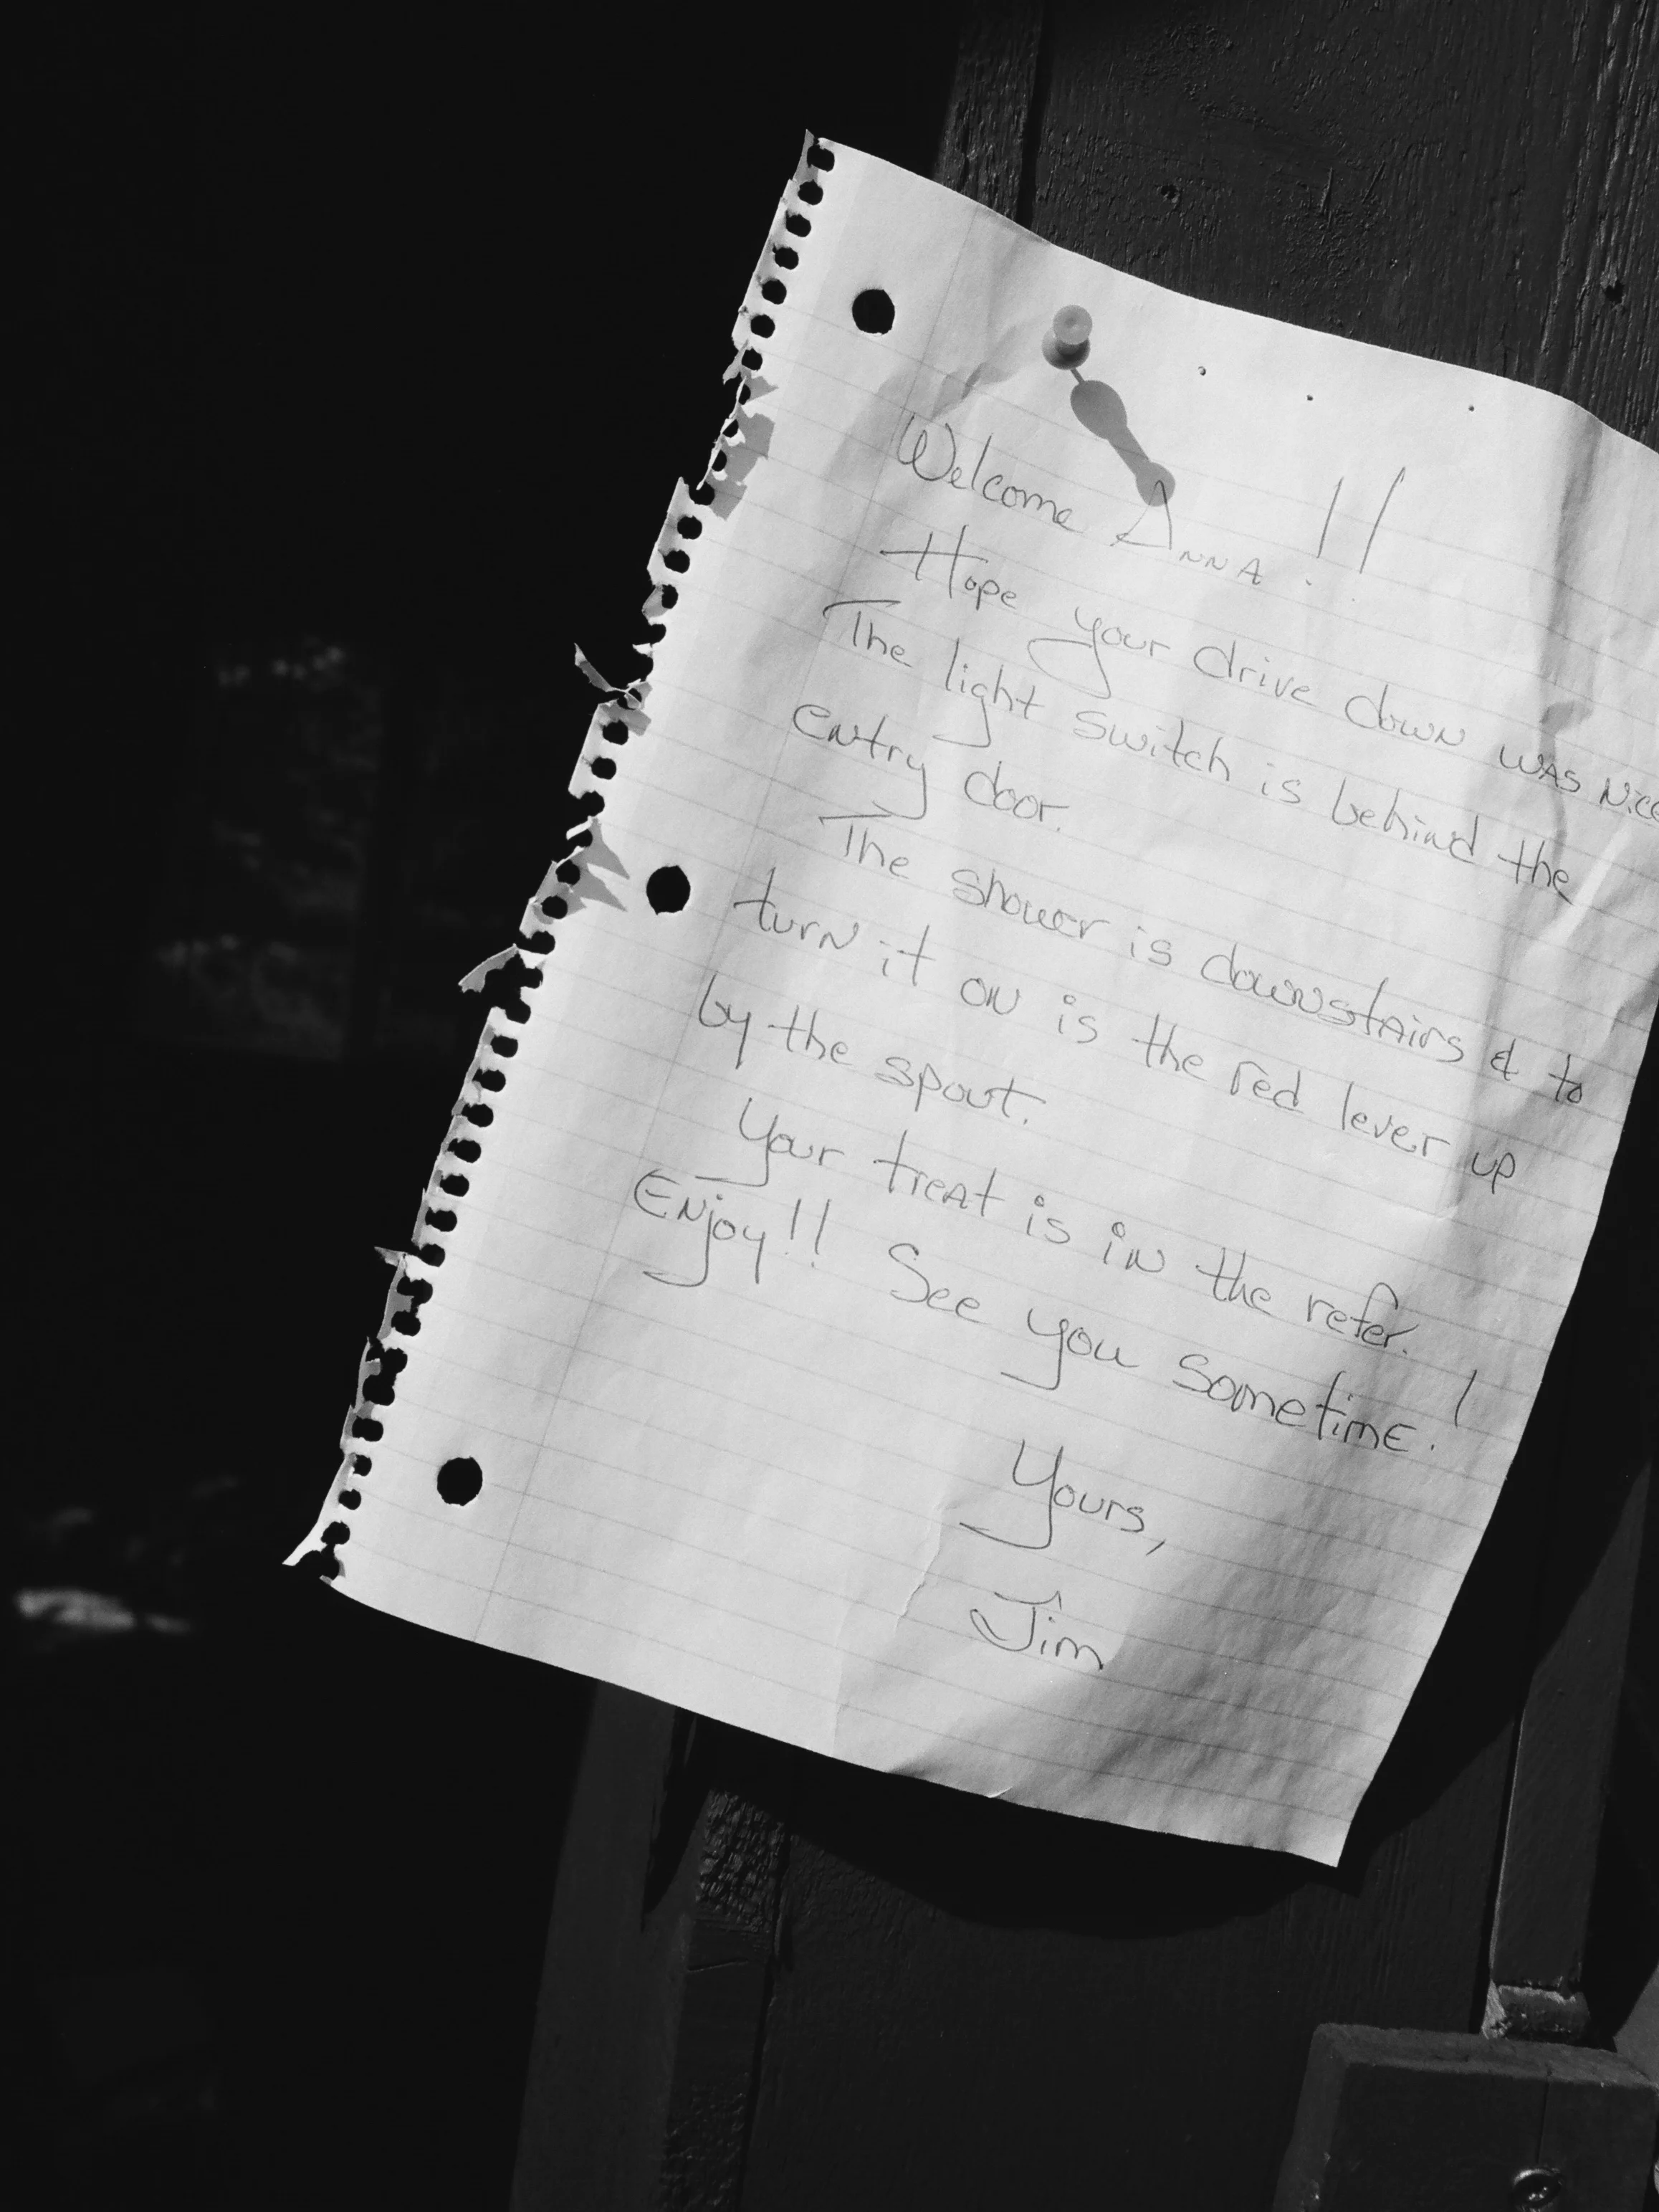 Welcome Anna!!
Hope your drive down was nice
The light switch is behind the
entry door.
The shower is downstairs & to
turn it on is the red lever up
by the spout.
Your treat is in the refer.
Enjoy!! See you sometime!
Yours,
Jim